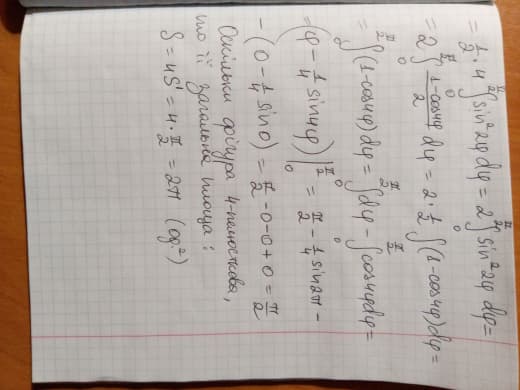 = 1/2 · 4 ∫₀^{π/2} sin²2φ dφ = 2 ∫₀^{π/2} sin²2φ dφ =
= 2 ∫₀^{π/2} (1-cos4φ)/2 dφ = 2 · 1/2 ∫ (1-cos4φ)dφ =
= ∫₀^{π/2} (1-cos4φ)dφ = ∫₀^{π/2} dφ - ∫₀^{π/2} cos4φdφ =
= (φ - 1/4 sin4φ) |₀^{π/2} = π/2 - 1/4 sin2π -
- (0 - 1/4 sin0) = π/2 - 0 - 0 + 0 = π/2
Оскільки фігура 4-пелюсткова,
то її загальна площа:
S = 4S' = 4 · π/2 = 2π (од.²)